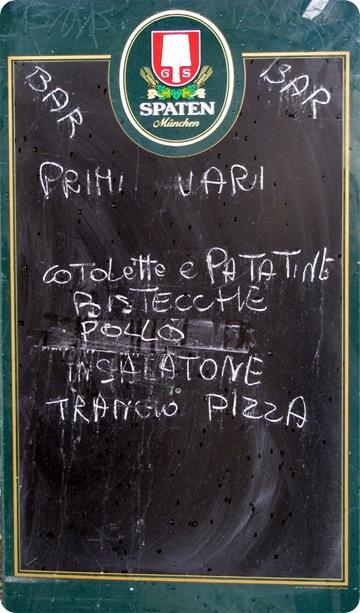 BAR BAR
G S
SPATEN
München
BAR BAR
PRIMI VARI
COTOLETTE e PATATINE
BISTECCHE
POLLO
INSALATONE
TRANCIO PIZZA